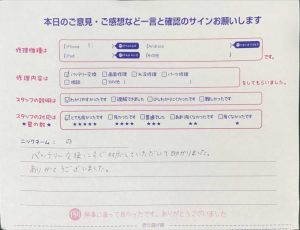 本日のご意見・ご感想など一言と確認のサインお願いします
修理機種は
iPhone
Android
iPad
その他
修理内容は
バッテリー交換 画面修理 水没修理 パーツ修理
その他
をしてもらいました。
スタッフの説明は
わかりやすかったです 理解できました 少しわかりにくかったです 難しかったです
スタッフの対応は
★星の数
とても良かったです 良かったです 普通です
★★★★★ ★★★★ ★★★ ★★ ★
ニックネーム: の
バッテリー交換にすぐ対応していただいて助かりました。
ありがとうございました。
無事に直って良かったです、ありがとうございました